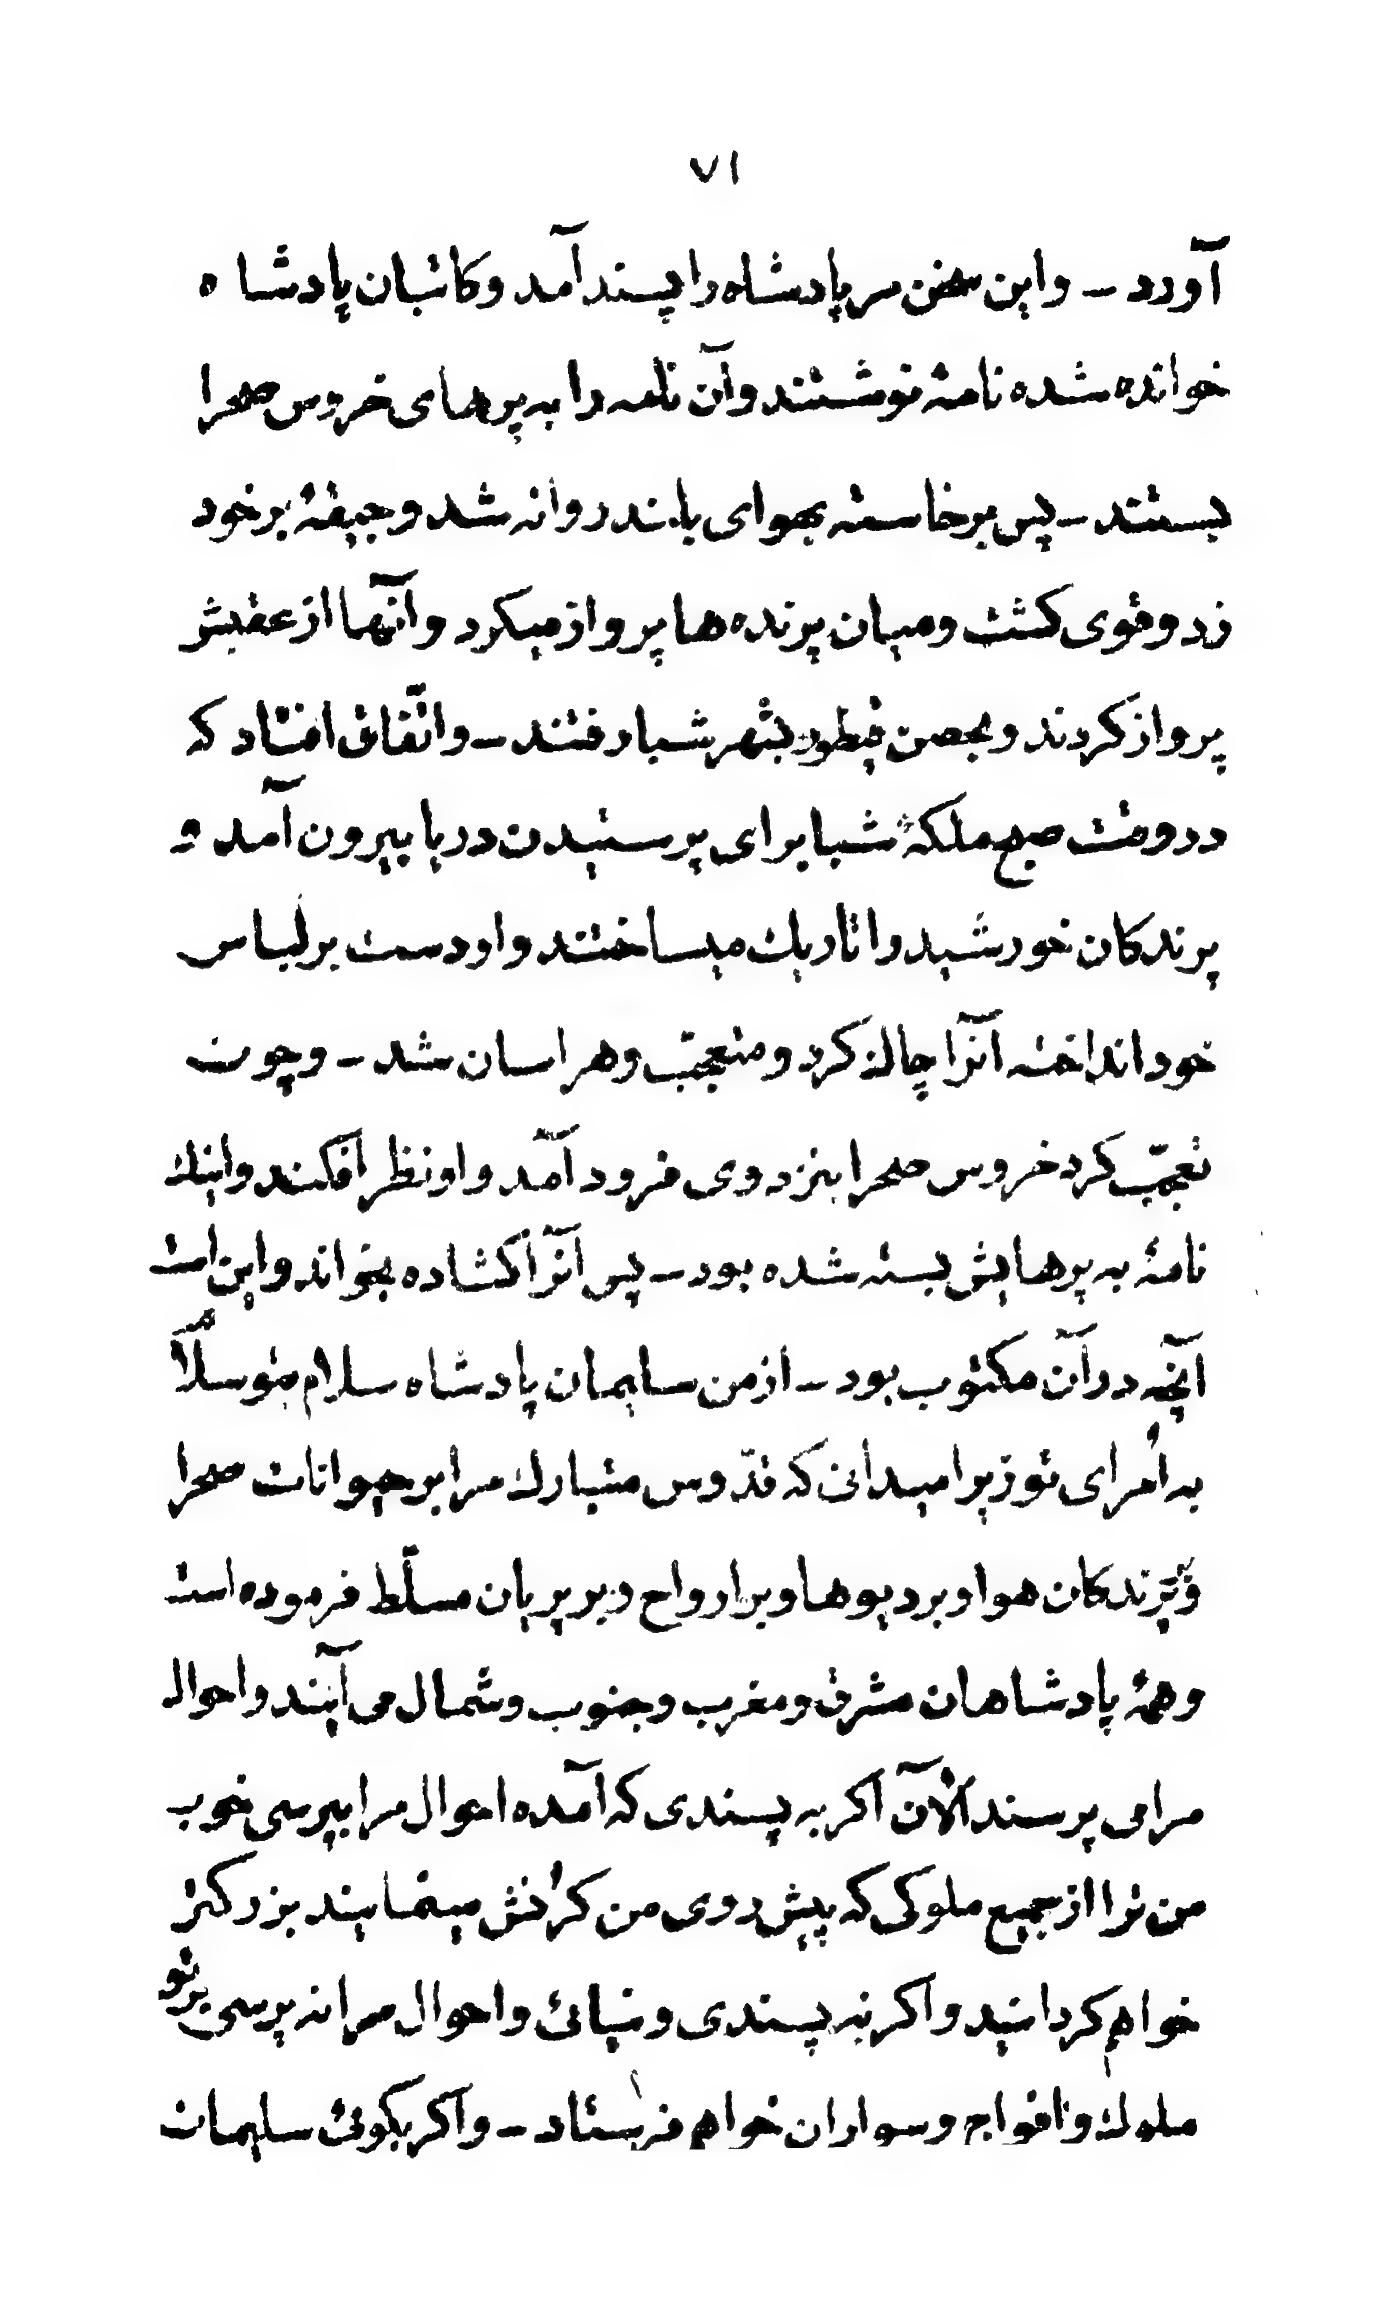 ۷۱
آورد ــ واین سخن مر پادشاه را پسند آمد و کاتبان پادشاه
خوانده شده نامۀ نوشتند وآن نامه را به پرهای خروس صحرا
بستند ــ پس برخاسته بهوای بلند روانه شد وجیفۀ برخود
زد وقوی کشت ومیان پرنده ها پرواز میکرد وآنها از عقبش
پرواز کردند وبحصن قیطور بشهر شبا رفتند ــ واتّفاق افتاد که
در وقت صبح ملکۀ شبا برای پرستیدن دریا بیرون آمد و
پرندکان خورشید را تاریك میساختند واو دست بر لباس
خود انداخته آنرا چاك کرد ومتعجّب وهراسان شد ــ وچون
تعجّب کرد خروس صحرا بنزد وی فرود آمد واو نظر افکند واینك
نامۀ به پرهایش بسته شده بود ــ پس آنرا کشاده بخواند واین است
آنچه در آن مکتوب بود ــ از من سلیمان پادشاه سلام بتو سلام
به اُمرای تو زیرا میدانی که قدّوس متبارك مرا بر حیوانات صحرا
وبر پرندکان هوا وبر دیوها وبر ارواح وبر پریان مسلّط فرموده است
وهمۀ پادشاهان مشرق ومغرب وجنوب وشمال می آیند واحوال
مرا می پرسند الآن اکر به پسندی که آمده احوال مرا بپرسی خوب
من ترا از جمیع ملوکی که پیش روی من کُرنش مینمایند بزرکتر
خواهم کردانید واکر نه پسندی ونیائی واحوال مرا نه پرسی برتو
ملوك وافواج وسواران خواهم فرستاد ــ واکر بکوئی سلیمان